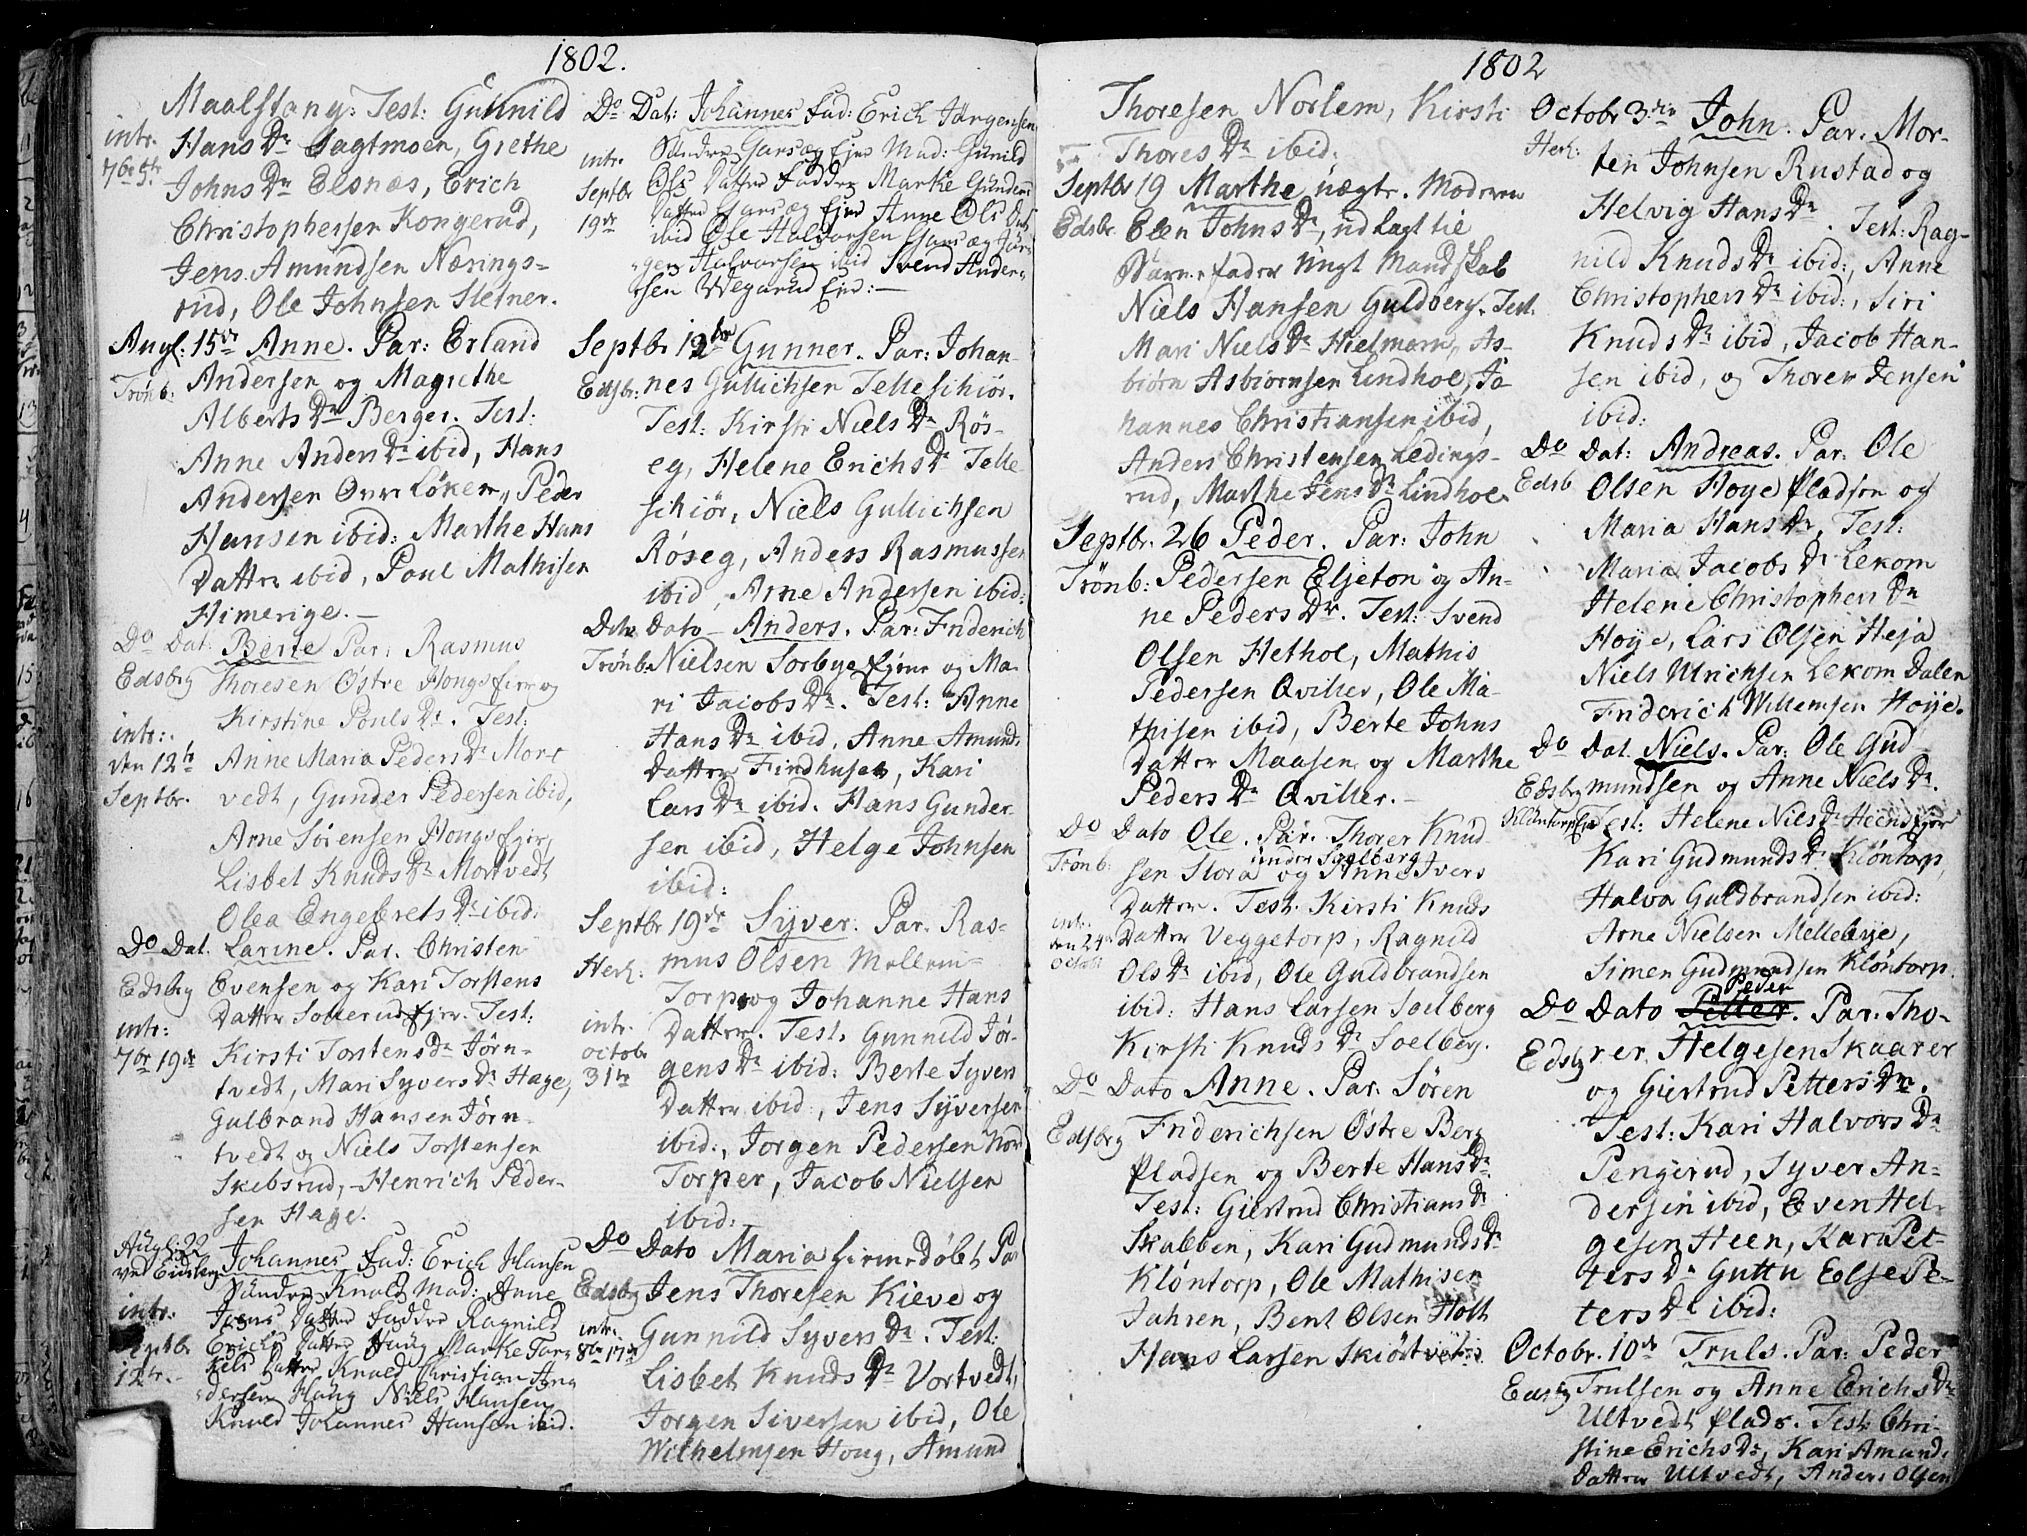 1802.
Maalstang. Test: Gunnild
intr. Hans Dr Sagtmoen, Grethe
7br 5te Johns Dr Elsnæs, Erich
Christophersen Kongerud,
Jens Amundsen Nærings-
rud, Ole Johnsen Sletner.
Augl: 15de Anne. Par: Erland
Trönb: Andersen og Magrethe
Alberts Dr Berger. Test:
Anne Anders Dr ibid, Hans
Andersen Ovre Löken, Peder
Hansen ibid: Marthe Hans
Datter ibid, Poul Mathisen
Himerige.
Do Dat: Berte Par: Rasmus
Edsberg Thoresen Östre Hongsfier og
Kirstine Pouls Dr. Test:
intr: Anne Maria Peders Dr Mort
den 12te vedt, Gunder Pedersen ibid,
Septbr. Arne Sörensen Hongsfier,
Lisbet Knuds Dr Mortvedt
Olea Engebrets Dr ibid.
Do Dat. Larine. Par. Christen
Edsberg Evensen og Kari Torstens
Datter Sollerud Ejer. Test:
intr: Kirsti Torstens Dr Jörn-
7br 19de tvedt, Mari Syvers Dr Hage,
Gulbrand Hansen Jörn-
tvedt og Niels Torstensen
Skebsrud, Henrich Peder-
sen Hage.
Augl: 22 Johannes Fad: Erich Hansen
ved Eidsberg Söndre Knold Mad: Anne
intr. Jens Datter Faddre Ragnild
Septbr Erichs Datter Haug Marthe Tor-
12te kels Datter Knold Christian An-
dersen Haug Niels Hansen
Knold Johannes Hansen ibid.
Do Dat: Johannes Fad: Erich Jörgensen
intr. Söndre Garsæg Ejer Mad: Gunild
Septbr Ols Datter Faddre Marthe Gunders
19de Datter Garsæg Ejer Anne Ols Dat
ibid Ole Halvorsen Garsæg Jör-
gen Halvorsen ibid Svend Ander-
sen Wegarud Ejer:
Septbr 12te Gunner. Par: Johan-
Edsbr: nes Gullichsen Telleschiör.
Test: Kirsti Niels Dr Rös-
eg, Helene Erichs Dr Telle
schiör, Niels Gullichsen
Röseg, Anders Rasmussen
ibid, Arne Andersen ibid:
Dito Dato Anders. Par: Friderich
Trönb: Nielsen Sorbye Ejer og Ma-
ri Jacobs Dr. Test: Anne
Hans Dr ibid, Anne Amunds
Datter Findhuset, Kari
Lars Dr ibid. Hans Gunder-
sen ibid, Helge Johnsen
ibid:
Septbr 19de Syver. Par. Ras-
Herl: mus Olsen Mellem-
Torp og Johanne Hans
intr. Datter. Test. Gunnild Jör-
octobr gens Dr ibid: Berte Syvers
31te Datter ibid, Jens Syversen
ibid:, Jorgen Pedersen Nord
Torper, Jacob Nielsen
ibid:
Do Dato Maria hiemedöbt Pa
Edsberg Jens Thoresen Kieve og
intr. Gunnild Syvers Dr. Test:
8br 17de Lisbet Knuds Dr Vortvedt,
Jorgen Siversen ibid, Ole
Wilhelmsen Houg, Amund
1802
Thoresen Norlem, Kirsti
Thores Dr ibid.
Septbr 19 Marthe uægte. Moderen
Edsbr. Elen Johns Dr, udlagt til
Barnefader Ungt Mandskab
Niels Hansen Guldberg. Test.
Mari Niels Dr Hielmark, As-
biörn Asbiornsen Lindhol, Jo
hannes Christiansen ibid,
Anders Christensen Ledings-
rud, Marthe Jens Dr Lindhol.
Septbr. 26 Peder. Par: John
Trönb: Pedersen Eljeton og An-
ne Peders Dr. Test: Svend
Olsen Hethol, Mathis
Pedersen Qviller, Ole Ma-
thisen ibid, Berte Johns
Datter Maasen og Marthe
Peders Dr Qviller.
Do Dato Ole. Par. Thorer Knud-
under Soelberg
Trönb: sen Stora og Anne Ivers
Datter. Test. Kirsti Knuds
intr. Datter Veggetorp, Ragnild
den 24de Ols Dr ibid, Ole Guldbrandsen
Octobr ibid: Hans Larsen Soelberg
Kirsti Knuds Dr Soelberg.
Do Dato Anne. Par. Sören
Edsberg Friderichsen Östre Berg
Pladsen og Berte Hans Dr
Test: Giertrud Christians Dr
Skabben, Kari Gudmunds Dr
Klöntorp, Ole Mathisen
Jahren, Bent Olsen Holt
Hans Larsen Skiörtvet.
Octobr 3die John. Par. Mor-
Herl: ten Johnsen Rustad og
Helvig Hans Dr. Test: Rag-
nild Knuds Dr ibid:, Anne
Christophers Dr ibid:, Siri
Knuds Dr ibid, Jacob Han-
sen ibid, og Thorer Jensen
ibid:
Do Dat: Andreas. Par: Ole
Edsb Olsen Hoye Pladsen og
Maria Hans Dr, Test:
Maria Jacobs Dr Lekom
Helene Christophers Dr
Hoye, Lars Olsen Heja
Niels Ulrichsen Lekom Dalen
Friderich Willemsen Hoye.
Do Dat. Niels. Par: Ole Gud-
Edsberg mundsen og Anne Niels Dr.
Test: Helene Niels Dr Heen Ejer
Kari Gudmunds Dr Klöntorp,
Halvor Guldbrandsen ibid:
Arne Nielsen Mellebye,
Simen Gudmundsen Klöntorp.
Peder
Do Dato Petter. Par. Tho-
Edsbg rer Helgesen Skaarer
og Giertrud Petters Dr.
Test: Kari Halvors Dr
Pengerud, Syver An-
dersen ibid, Even Hel-
gesen Heen, Kari Pet-
ters Dr Guttu Edse Pe-
ters Dr ibid:
Octobr. 10de Truls. Par: Peder
Edsbg Trulsen og Anne Erichs Dr
Ultvedt Plads. Test: Chri-
stine Erichs Dr, Kari Amunds
Datter Ultvedt, Anders Olsen